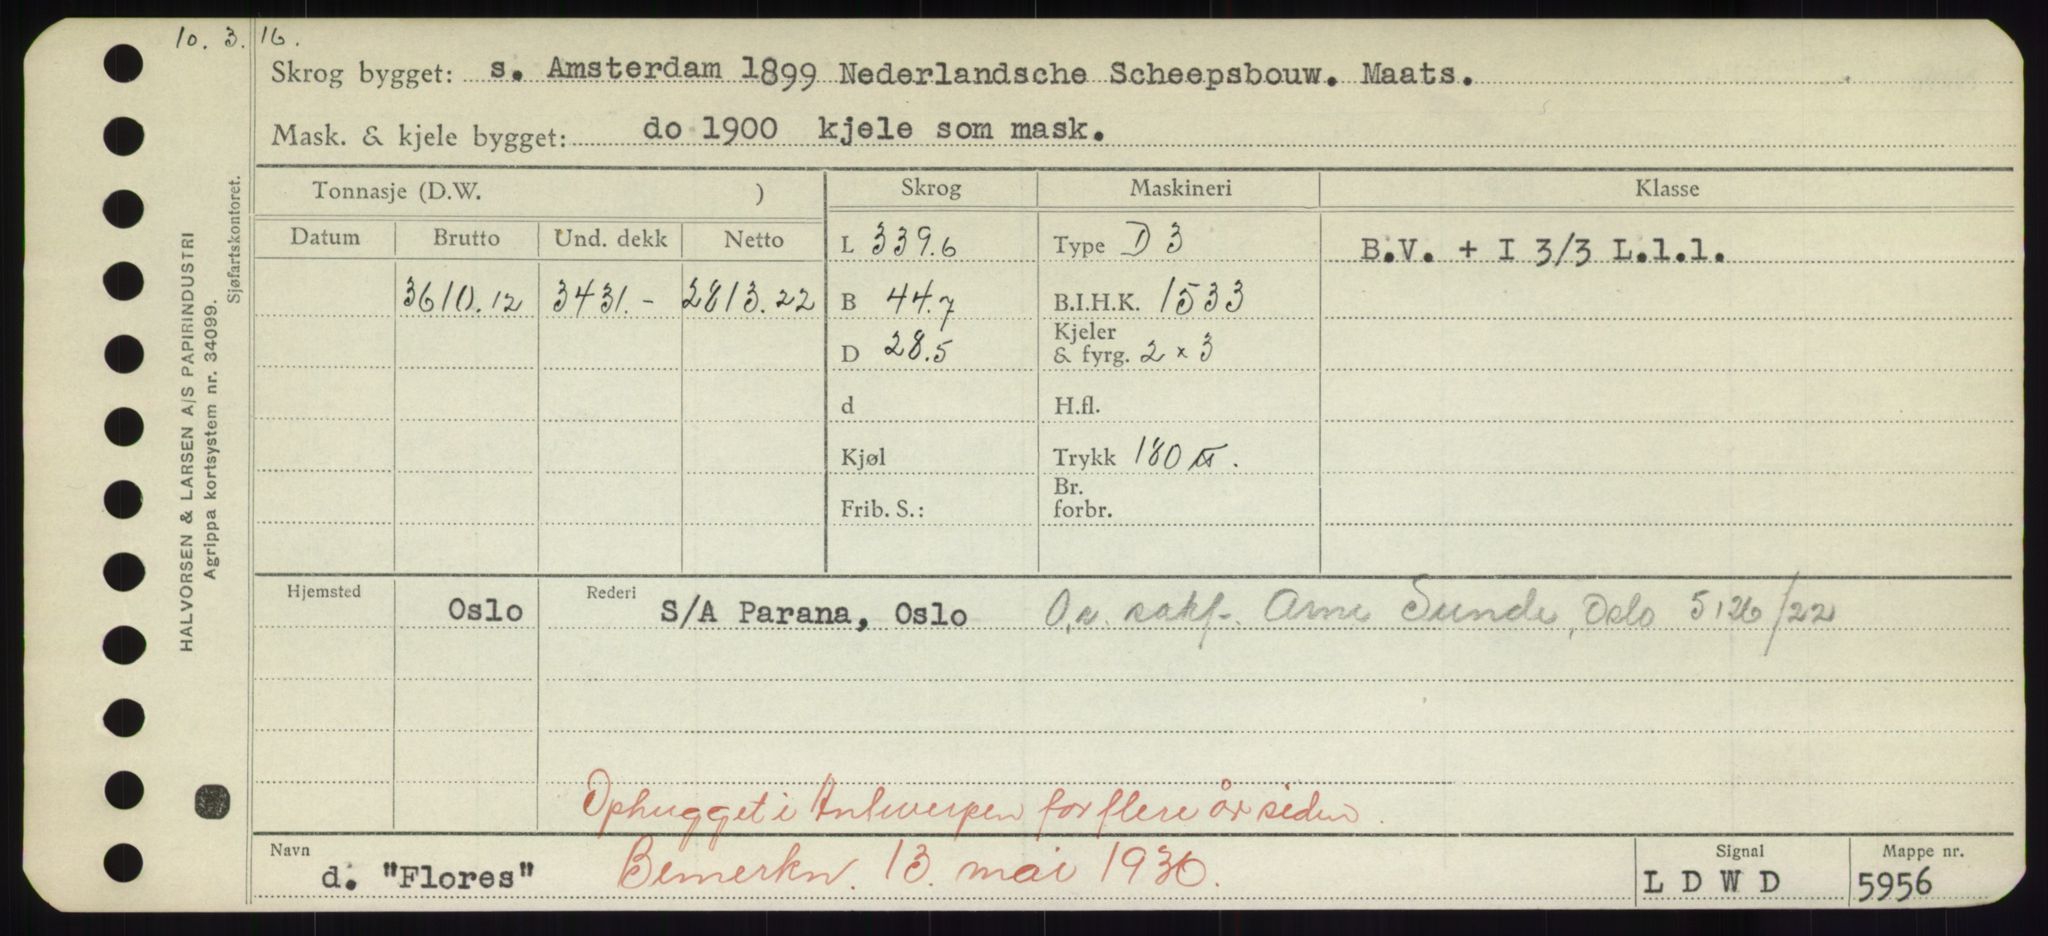 10. 3. 16.
Skrog bygget: s. Amsterdam 1899 Nederlandsche Scheepsbouw. Maats.
Mask. & kjele bygget: do 1900 kjele som mask.
Tonnasje (D.W. )
Skrog
Maskineri
Klasse
Datum Brutto Und. dekk Netto
L 339.6
Type D 3
B.V. + I 3/3 L.l.l.
3610.12 3431.- 2813.22
B 44.7
B.I.H.K. 1533
D 28.5
Kjeler
& fyrg. 2 x 3
d
H.fl.
Kjøl
Trykk 180
Frib. S.:
Br.
forbr.
Hjemsted Oslo
Rederi S/A Parana, Oslo Arne Sunde, Oslo 5126/22
Ophugget i Antwerpen for flere år siden.
Navn d. "Flores" Bemerkn. 13. mai 1930.
Signal LDWD
Mappe nr. 5956
HALVORSEN & LARSEN A/S PAPIRINDUSTRI
Agrippa kortsystem nr. 34099.
Sjøfartskontoret.